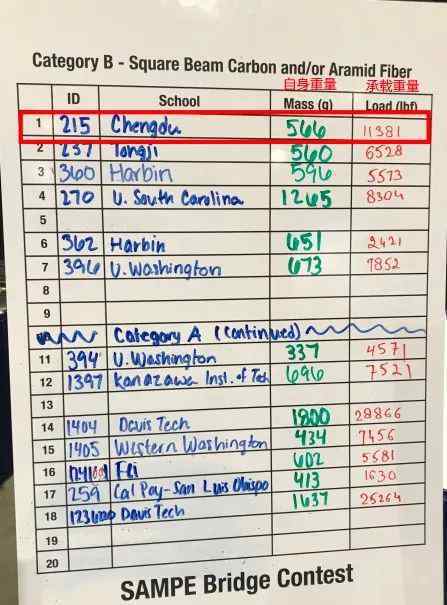 Category B - Square Beam Carbon and/or Aramid Fiber
自身重量 承载重量
ID School Mass (g) Load (lbf)
1 215 Chengdu 566 11381
2 237 Tongji 560 6528
3 360 Harbin 596 5573
4 270 U. South Carolina 1265 8304
5
6 362 Harbin 651 2421
7 396 U. Washington 673 7852
8
9
Category A (continued)
11 394 U. Washington 337 4571
12 1397 Kanazawa Inst. of Tech 696 7521
13
14 1404 Davis Tech 1800 28866
15 1405 Western Washington 434 7456
16 602 5581
17 259 Cal Poy-San Luis Obispo 413 1630
18 Davis Tech 1637 25264
19
20
SAMPE Bridge Contest